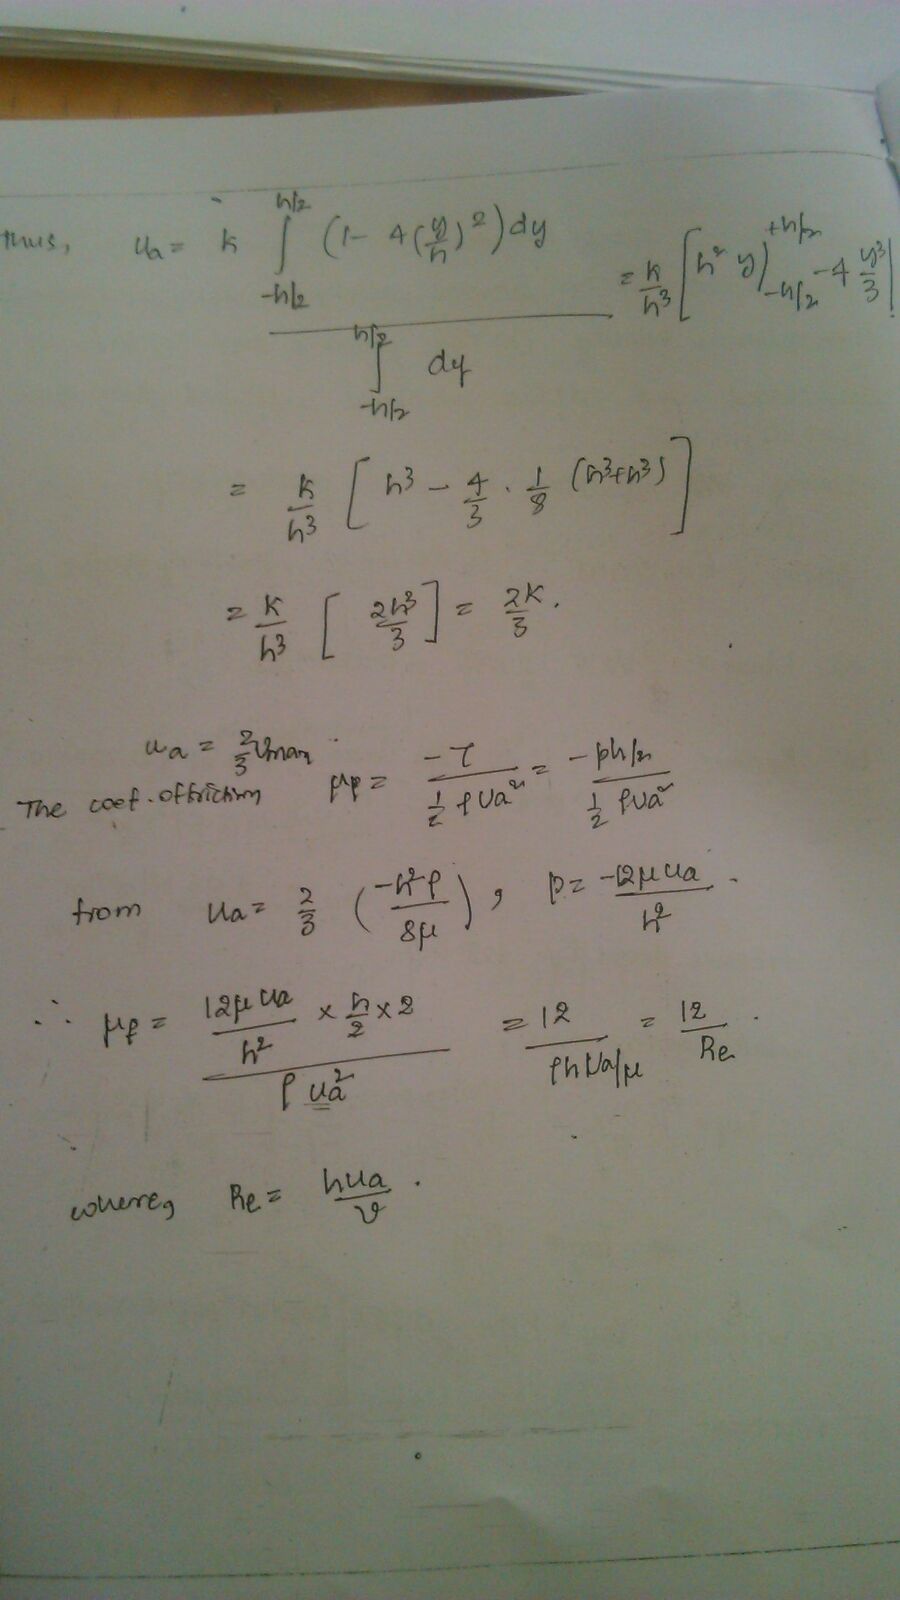 thus, ua = k ∫_{-h/2}^{h/2} (1 - 4(y/h)^2) dy / ∫_{-h/2}^{h/2} dy = k/h^3 [h^2 y)_{-h/2}^{+h/2} - 4 y^3/3|
= k/h^3 [h^3 - 4/3 · 1/8 (h^3+h^3)]
= k/h^3 [2h^3/3] = 2k/3.
ua = 2/3 Umax.
The coef. of friction μf = -τ / (1/2 ρ Ua^2) = -ph/2 / (1/2 ρ Ua^2)
from ua = 2/3 (-h^2 p / 8μ), p = -12μua / h^2.
∴ μf = (12μua/h^2 × h/2 × 2) / (ρ ua^2) = 12 / (ρhUa/μ) = 12/Re.
where, Re = hua/ν.